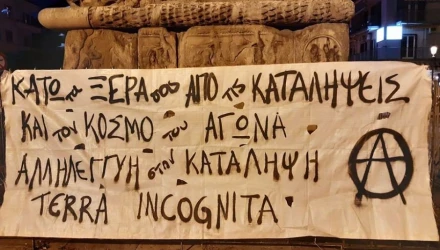 ΚΑΤΩ τα ΞΕΡΑ σας ΑΠΟ τις ΚΑΤΑΛΗΨΕΙΣ
ΚΑΙ τον ΚΟΣΜΟ του ΑΓΩΝΑ
ΑΛΛΗΛΕΓΓΥΗ στην ΚΑΤΑΛΗΨΗ
TERRA INCOGNITA